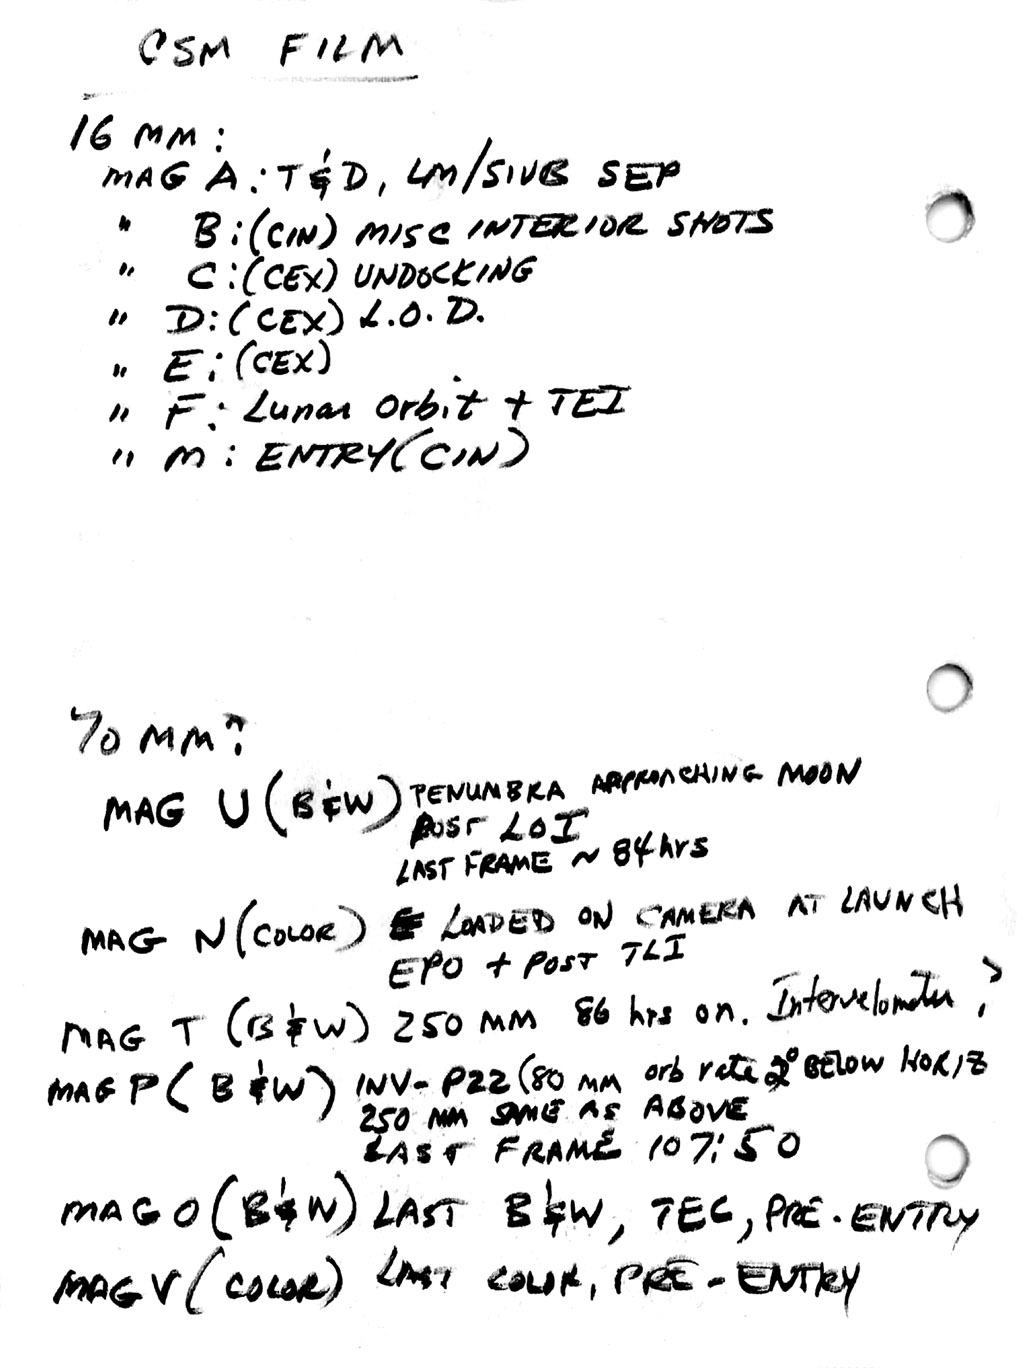 CSM FILM
16 MM:
MAG A: T&D, LM/SIVB SEP
" B: (CIN) MISC INTERIOR SHOTS
" C: (CEX) UNDOCKING
" D: (CEX) L.O.D.
" E: (CEX)
" F: Lunar Orbit + TEI
" M: ENTRY (CIN)
70 MM:
MAG U (B&W) PENUMBRA APPROACHING MOON
POST LOI
LAST FRAME ~ 84 hrs
MAG N (COLOR) LOADED ON CAMERA AT LAUNCH
EPO + POST TLI
MAG T (B&W) 250 MM 86 hrs on. Intervelometer ?
MAG P (B&W) INV- P22 (80 MM orb rate 2° BELOW HORIZ
250 MM SAME AS ABOVE
LAST FRAME 107:50
MAG O (B&W) LAST B&W, TEC, PRE-ENTRY
MAG V (COLOR) LAST COLOR, PRE-ENTRY